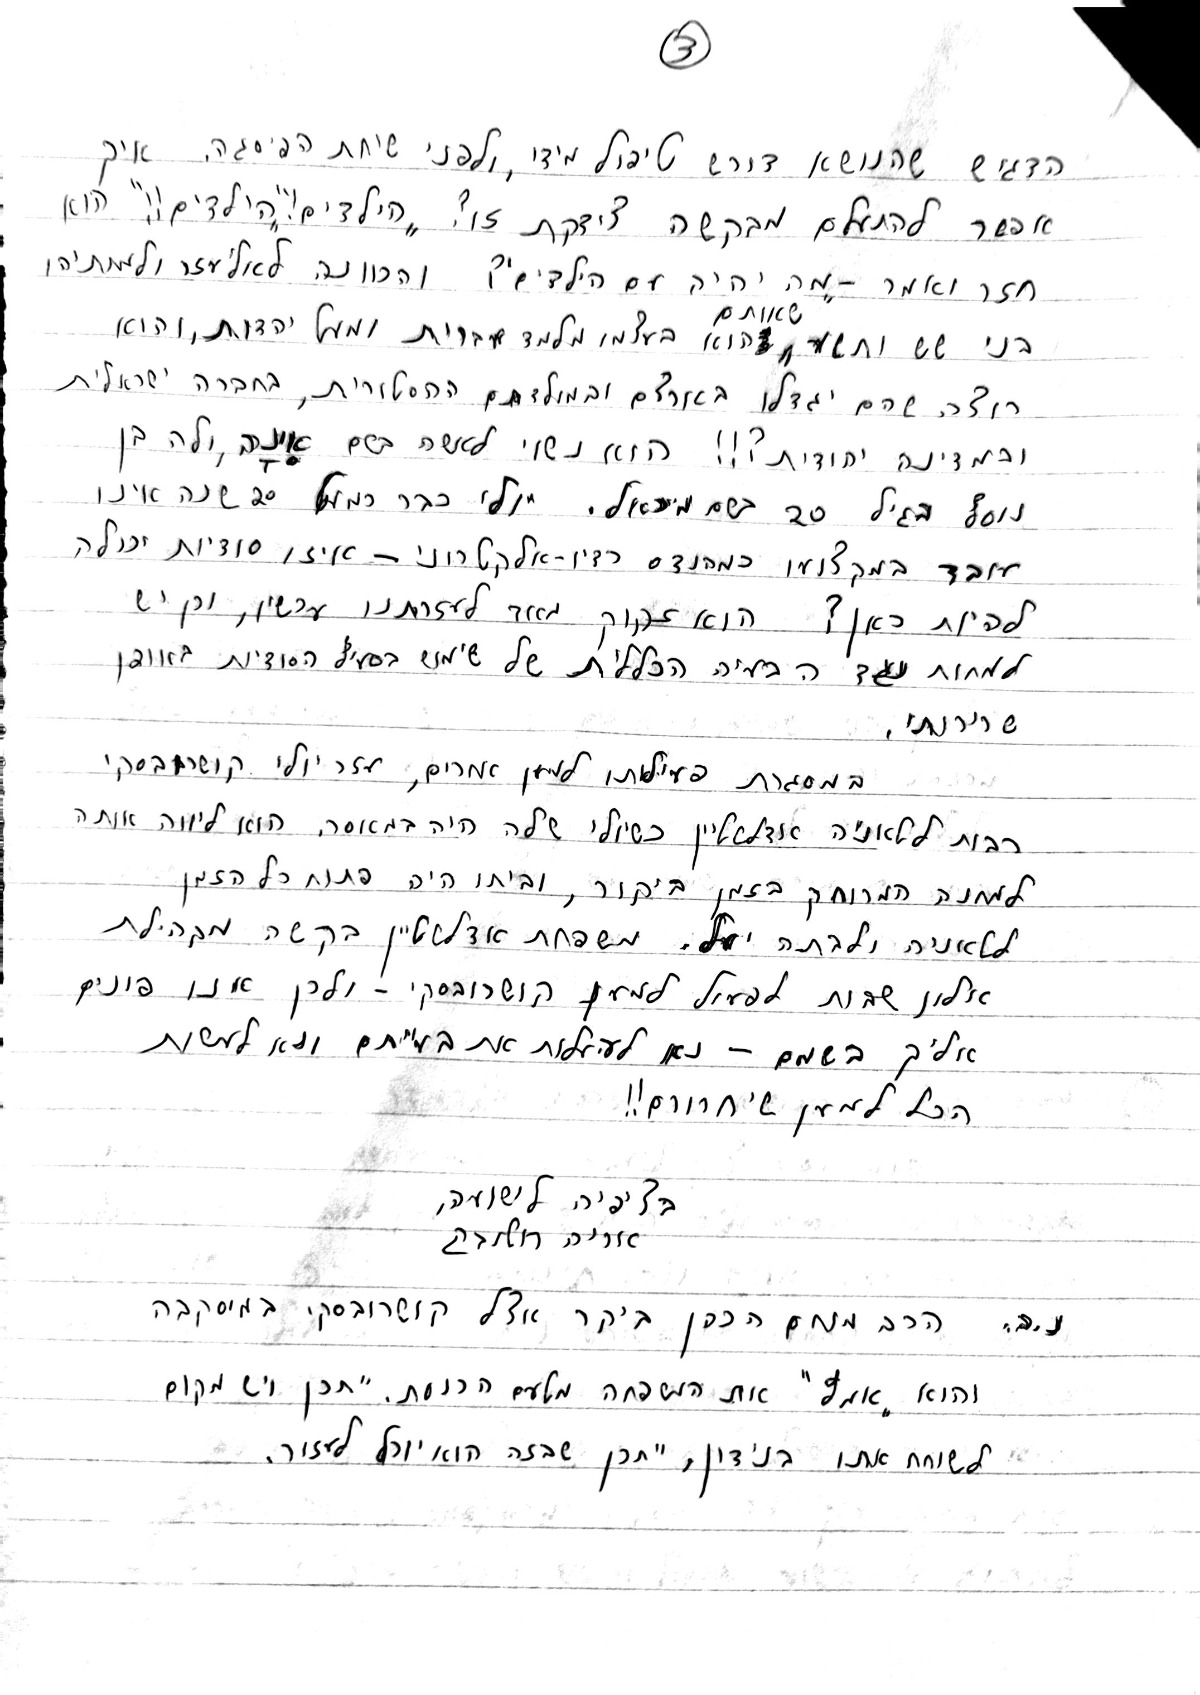 3
הדגיש שהנושא דורש טיפול מידי, ולפני שיחת הפיסגה. איך
אפשר להתעלם מבקשה צידקת זו? "הילדים!" "הילדים!!" הוא
חזר ואמר – "מה יהיה עם הילדים"? והכוונה לאליעזר ולמתתיהו
בני שש ותשע, שאותם הוא בעצמו מלמד עברית ומעט יהדות, והוא
רוצה שהם יגדלו בארצם ובמולדתם ההסטורית, בחברה ישראלית
ובמדינה יהודית?!! הוא נשוי לאשה בשם אינה, ולה בן
נוסף בגיל 20 בשם מיכאל. יולי כבר כמעט 20 שנה אינו
עובד במקצועו כמהנדס רדיו-אלקטרוני – איזו סודיות יכולה
להיות כאן? הוא זקוק מאד לעזרתנו עכשיו, וכן יש
למחות נגד הבעיה הכללית של שימוש בסעיף הסודיות באופן
שרירותי.
במסגרת פעילותו למען אחרים, עזר יולי קושרובסקי
רבות לטאניה אדלשטיין כשיולי שלה היה במאסר. הוא ליווה אותה
למחנה המרוחק בזמן ביקור, וביתו היה פתוח כל הזמן
לטאניה ולבתה יעל. משפחת אדלשטיין בקשה מקהילת
אלון שבות לפעול למען קושרובסקי – ולכן אנו פונים
אליך בשמם – נא להעלות את בעייתם ונא לעשות
הכל למען שיחרורם!!
בציפיה לישועה,
אריה
נ.ב. הרב מנחם הכהן ביקר אצל קושרובסקי במוסקבה
והוא "אמץ" את המשפחה מטעם הכנסת. יתכן ויש מקום
לשוחח אתו בנידון, יתכן שבזה הוא יוכל לעזור.